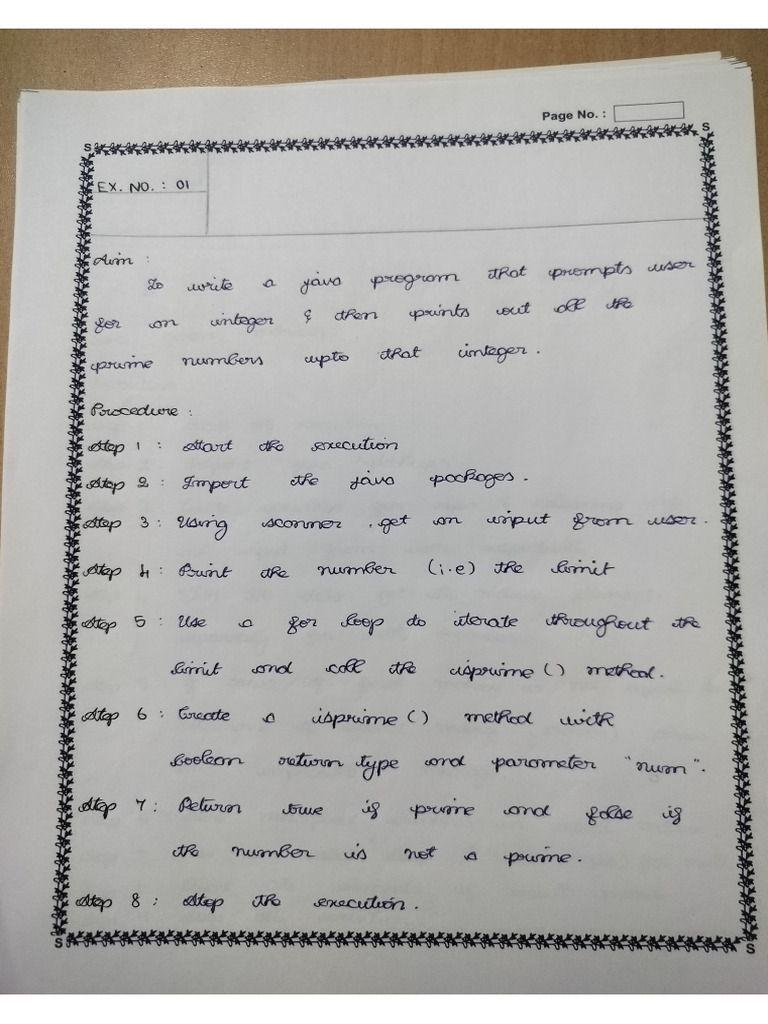 Page No. :
S S
EX. NO. : 01
Aim :
To write a java program that prompts user
for an integer & then prints out all the
prime numbers upto that integer.
Procedure :
Step 1 : Start the execution
Step 2 : Import the java packages.
Step 3 : Using scanner , get an input from user.
Step 4 : Print the number (i.e) the limit
Step 5 : Use a for loop to iterate throughout the
limit and call the isprime () method.
Step 6 : Create a isprime () method with
boolean return type and parameter "num".
Step 7 : Return true if prime and false if
the number is not a prime.
Step 8 : Stop the execution.
S S